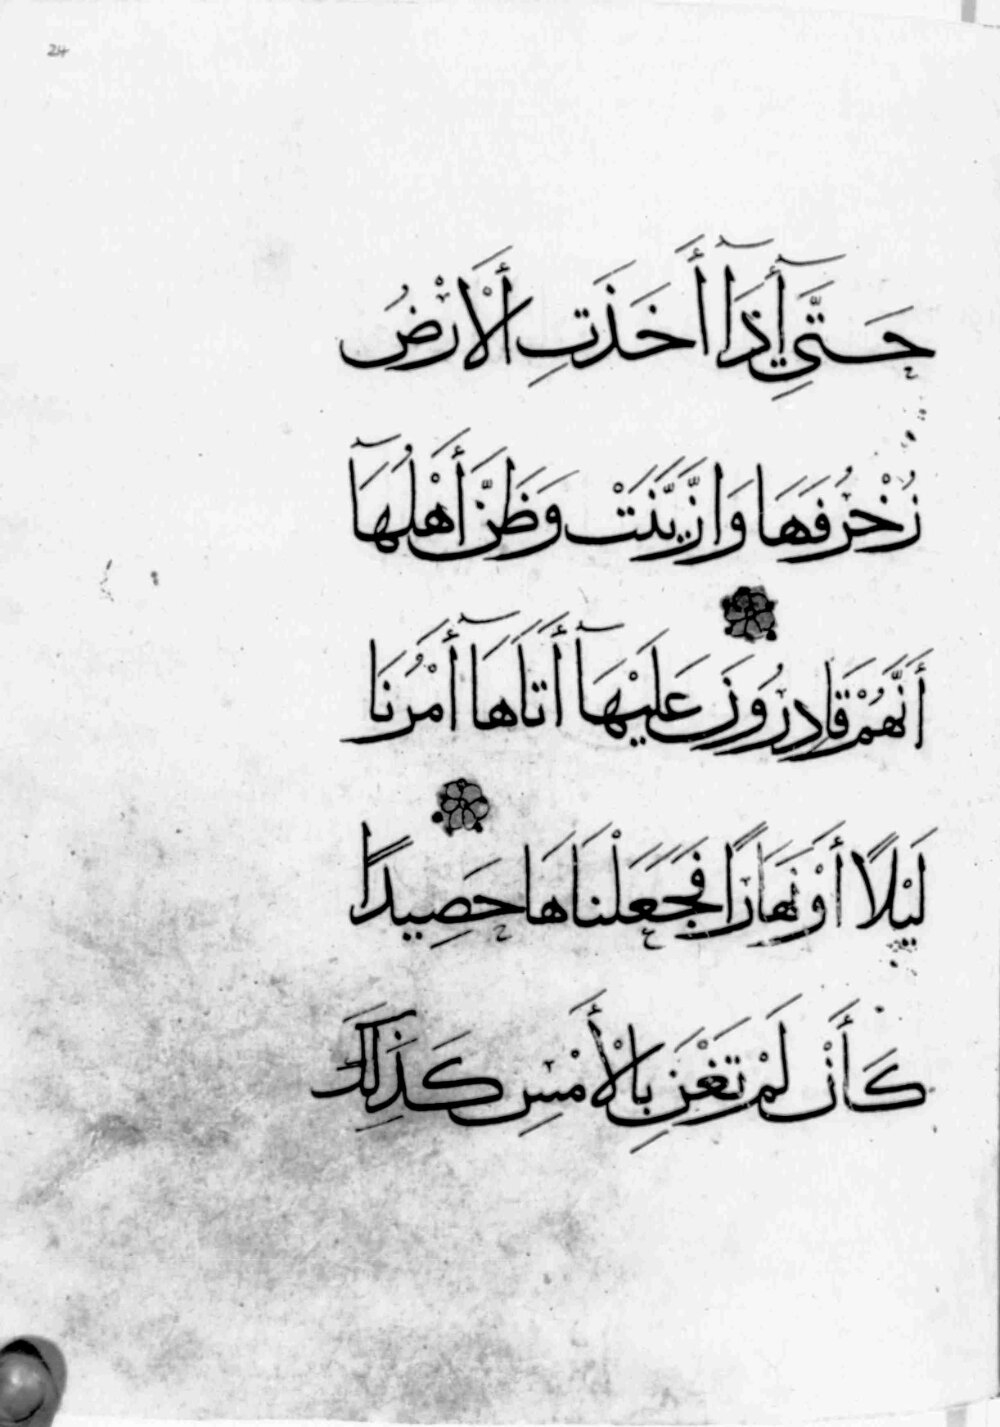 24
حَتَّىِ إِذَآ أَخَذَتِ اَلْأَرْضُ
زُخْرُفَهَا وَازَّيَّنَتْ وَظَنَّ أَهْلُهَآ
أَنَّهُمْ قَادِرُونَ عَلَيْهَآ أَتَاهَآ أَمْرُنَا
لَيْلًا أَوْ نَهَارًا فَجَعَلْنَاهَا حَصِيدًا
كَأَنْ لَمْ تَغْنَ بِالْأَمْسِ كَذَلِكَ